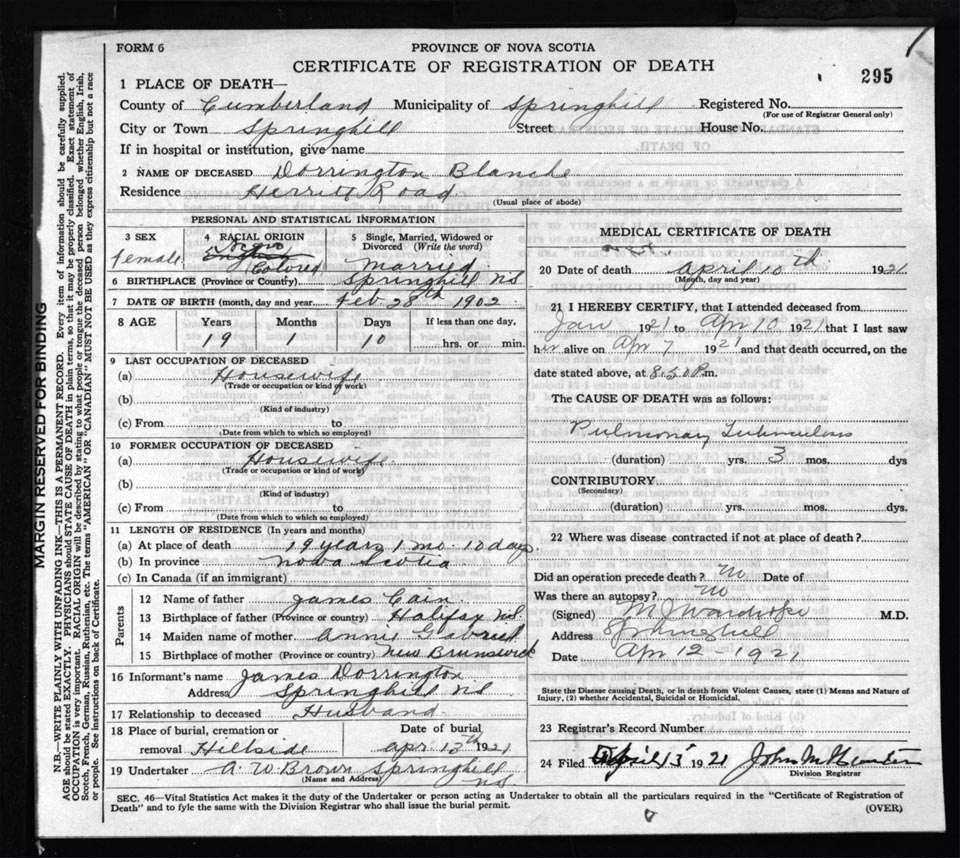 FORM 6
PROVINCE OF NOVA SCOTIA
CERTIFICATE OF REGISTRATION OF DEATH
295
1 PLACE OF DEATH—
County of Cumberland Municipality of Springhill Registered No.
(For use of Registrar General only)
City or Town Springhill Street House No.
If in hospital or institution, give name
2 NAME OF DECEASED Dorrington Blanche
Residence Herritt Road
(Usual place of abode)
PERSONAL AND STATISTICAL INFORMATION
3 SEX
female
4 RACIAL ORIGIN
English
Colored
5 Single, Married, Widowed or Divorced (Write the word)
Married
6 BIRTHPLACE (Province or Country) Springhill NS
7 DATE OF BIRTH (month, day and year) Feb. 28th 1902
8 AGE Years Months Days If less than one day,
19 1 10 hrs. or min.
9 LAST OCCUPATION OF DECEASED
(a) Housewife
(Trade or occupation or kind of work)
(b)
(Kind of industry)
(c) From to
(Date from which to which so employed)
10 FORMER OCCUPATION OF DECEASED
(a) Housewife
(Trade or occupation or kind of work)
(b)
(Kind of industry)
(c) From to
(Date from which to which so employed)
11 LENGTH OF RESIDENCE (In years and months)
(a) At place of death 19 years 1 mo. 10 days
(b) In province Nova Scotia
(c) In Canada (if an immigrant)
Parents
12 Name of father James Cain
13 Birthplace of father (Province or country) Halifax NS.
14 Maiden name of mother Annie Gabriel
15 Birthplace of mother (Province or country) New Brunswick
16 Informant's name James Dorrington
Address Springhill NS
17 Relationship to deceased Husband
18 Place of burial, cremation or Date of burial
removal Hillside Apr. 13th 1921
19 Undertaker A. W. Brown Springhill NS
(Name and Address)
MEDICAL CERTIFICATE OF DEATH
20 Date of death April 10th 1921
(Month, day and year)
21 I HEREBY CERTIFY, that I attended deceased from
Jan 1921 to Apr 10 1921 that I last saw
h alive on Apr 7 1921 and that death occurred, on the
date stated above, at 8.50 P.m.
The CAUSE OF DEATH was as follows:
Pulmonary Tuberculosis
(duration) yrs. 3 mos. dys
CONTRIBUTORY
(Secondary)
(duration) yrs. mos. dys.
22 Where was disease contracted if not at place of death?
Did an operation precede death? No Date of
Was there an autopsy? No
(Signed) M. J. Wardrope M.D.
Address Springhill
Date Apr 12 - 1921
State the Disease causing Death, or in death from Violent Causes, state (1) Means and Nature of
Injury, (2) whether Accidental, Suicidal or Homicidal.
23 Registrar's Record Number
24 Filed April 13 1921 John
Division Registrar
SEC. 46—Vital Statistics Act makes it the duty of the Undertaker or person acting as Undertaker to obtain all the particulars required in the "Certificate of Registration of
Death" and to fyle the same with the Division Registrar who shall issue the burial permit.
(OVER)
MARGIN RESERVED FOR BINDING
N.B.—WRITE PLAINLY WITH UNFADING INK—THIS IS A PERMANENT RECORD. Every item of information should be carefully supplied.
AGE should be stated EXACTLY. PHYSICIANS should STATE CAUSE OF DEATH in plain terms, so that it may be properly classified. Exact statement of
OCCUPATION is very important. RACIAL ORIGIN will be described by stating to what people or tongue the deceased person belonged whether English, Irish,
Scotch, French, German, Russian, Ruthenian, etc. The terms "AMERICAN" OR "CANADIAN" MUST NOT BE USED as they express citizenship but not a race
or people. See instructions on back of Certificate.